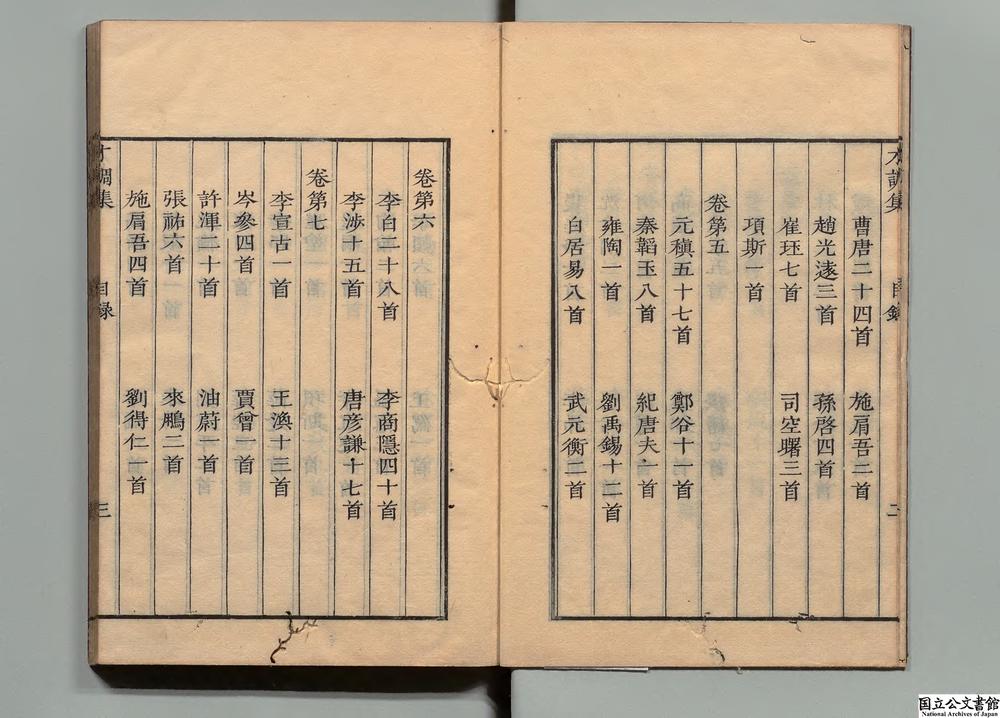 才調集 目錄 二
曹唐二十四首 施肩吾二首
趙光遠三首 孫啓四首
崔珏七首 司空曙三首
項斯一首
卷第五
元稹五十七首 鄭谷十一首
秦韜玉八首 紀唐夫一首
雍陶一首 劉禹錫十二首
白居易八首 武元衡三首
卷第六
李白二十八首 李商隱四十首
李涉十五首 唐彥謙十七首
卷第七
李宣古一首 王渙十三首
岑參四首 賈曾一首
許渾二十首 油蔚一首
張祐六首 來鵬二首
施肩吾四首 劉得仁一首
才調集 目錄 三
国立公文書館
National Archives of Japan